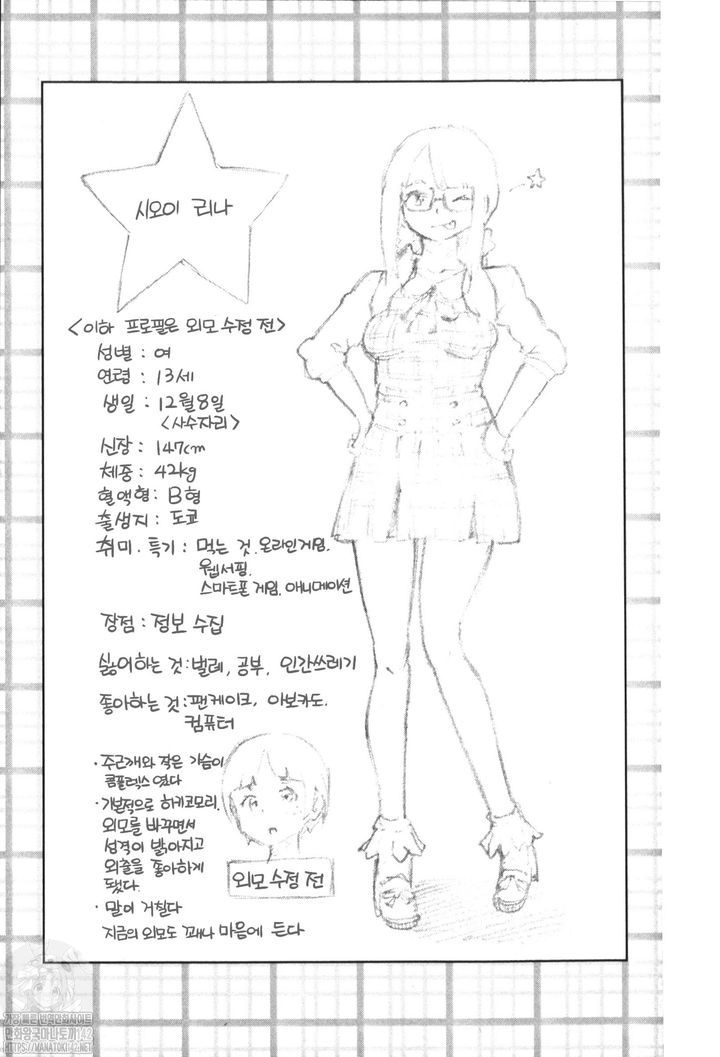 시오이 리나
<이하 프로필은 외모 수정 전>
성별 : 여
연령 : 13세
생일 : 12월 8일
<사수자리>
신장 : 147cm
체중 : 42kg
혈액형 : B형
출생지 : 도쿄
취미·특기 : 먹는 것. 온라인게임.
웹서핑.
스마트폰 게임. 애니메이션
장점 : 정보 수집
싫어하는 것 : 벌레, 공부, 인간쓰레기
좋아하는 것 : 팬케이크, 아보카도.
컴퓨터
· 주근깨와 작은 가슴이
콤플렉스 였다
· 기본적으로 히키코모리.
외모를 바꾸면서
성격이 밝아지고
외출을 좋아하게
됐다.
· 말이 거칠다
지금의 외모도 꽤나 마음에 든다
외모 수정 전
가장 빠른 번역만화사이트
만화왕국마나토끼42
HTTPS://MANATOKI42.NET